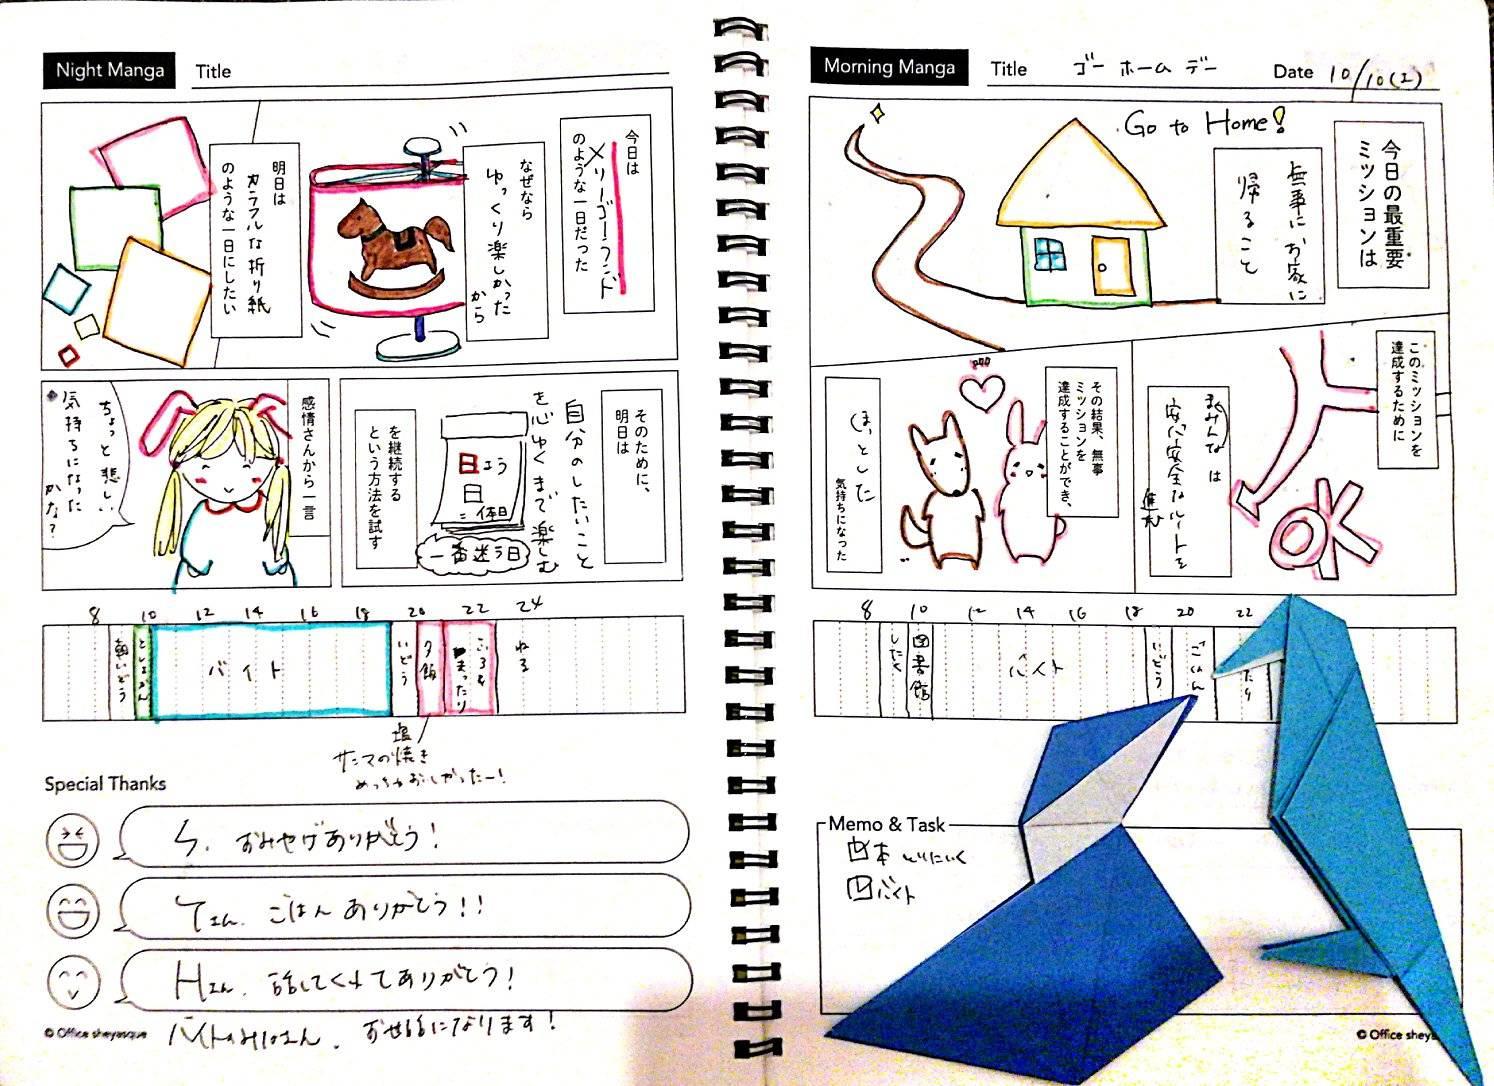 Night Manga
Title
今日は
メリーゴーランド
のような一日だった
なぜなら
ゆっくり楽しかった
から
明日は
カラフルな折り紙
のような一日にしたい
そのために、
明日は
自分のしたいこと
を心ゆくまで楽しむ
日
日
=休日
一番迷う日
を継続する
という方法を試す
感情さんから一言
ちょっと悲しい
気持ちになった
かな?
8 10 12 14 16 18 20 22 24
朝いどう
としょかん
バイト
いどう
夕飯
まったり
ねる
塩
サンマの焼き
めっちゃおいしかったー!
Special Thanks
おみやげありがとう!
Tさん、ごはんありがとう!!
Hさん、話してくれてありがとう!
お世話になります!
© Office
Morning Manga
Title ゴーホームデー
Date 10/10
Go to Home!
今日の最重要
ミッションは
無事にお家に
帰ること
このミッションを
達成するために
まみんなは
安心安全なルートを
進む
OK
その結果、無事
ミッションを
達成することができ、
ほっとした
気持ちになった
8 10 12 14 16 18 20 22
したく
図書館
バイト
いどう
ごはん
たり
Memo & Task
本
バイト
© Office